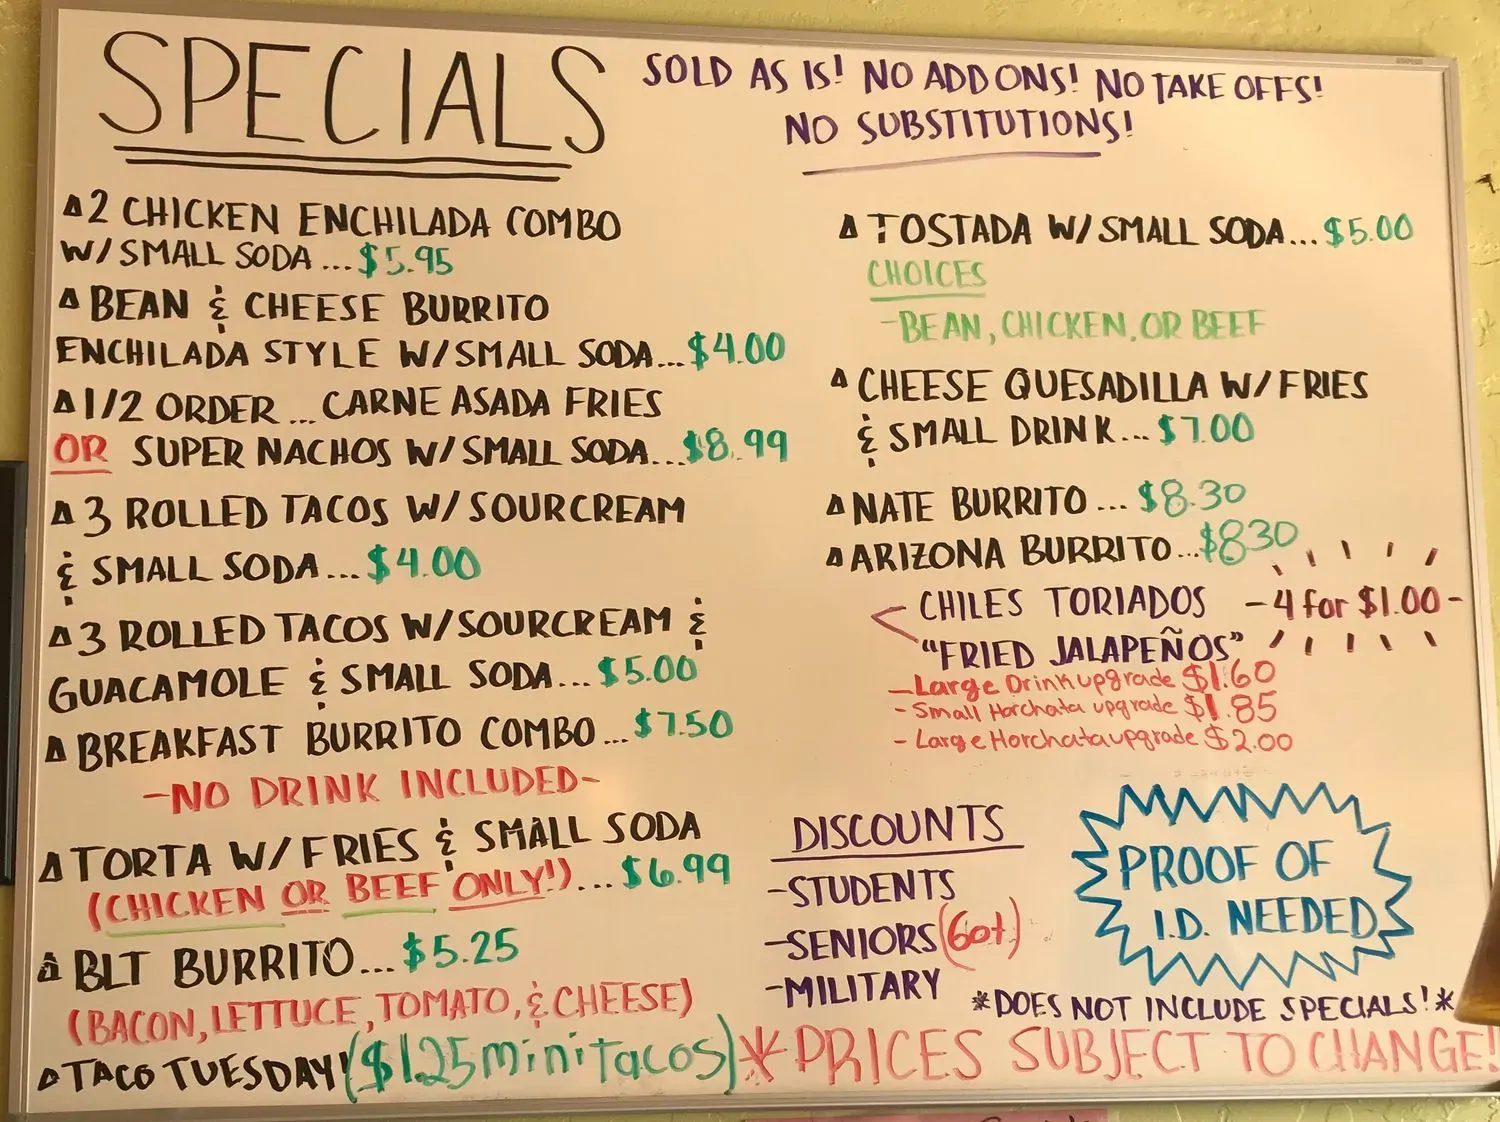 SPECIALS
SOLD AS IS! NO ADD ONS! NO TAKE OFFS!
NO SUBSTITUTIONS!
∆ 2 CHICKEN ENCHILADA COMBO
W/SMALL SODA ... $5.95
∆ BEAN & CHEESE BURRITO
ENCHILADA STYLE W/SMALL SODA... $4.00
∆ 1/2 ORDER ... CARNE ASADA FRIES
OR SUPER NACHOS W/SMALL SODA... $8.99
∆ 3 ROLLED TACOS W/SOURCREAM
& SMALL SODA... $4.00
∆ 3 ROLLED TACOS W/SOURCREAM &
GUACAMOLE & SMALL SODA... $5.00
∆ BREAKFAST BURRITO COMBO... $7.50
-NO DRINK INCLUDED-
∆ TORTA W/FRIES & SMALL SODA
(CHICKEN OR BEEF ONLY!)... $6.99
∆ BLT BURRITO... $5.25
(BACON, LETTUCE, TOMATO, & CHEESE)
∆ TACO TUESDAY! ($1.25 mini tacos)
∆ TOSTADA W/SMALL SODA... $5.00
CHOICES
-BEAN, CHICKEN, OR BEEF
∆ CHEESE QUESADILLA W/FRIES
& SMALL DRINK... $7.00
∆ NATE BURRITO ... $8.30
∆ ARIZONA BURRITO... $830
CHILES TORIADOS - 4 for $1.00 -
"FRIED JALAPEÑOS"
- Large Drink upgrade $1.60
- Small Horchata upgrade $1.85
- Large Horchata upgrade $2.00
DISCOUNTS
-STUDENTS
-SENIORS (60+)
-MILITARY
PROOF OF
I.D. NEEDED
*DOES NOT INCLUDE SPECIALS!*
*PRICES SUBJECT TO CHANGE!